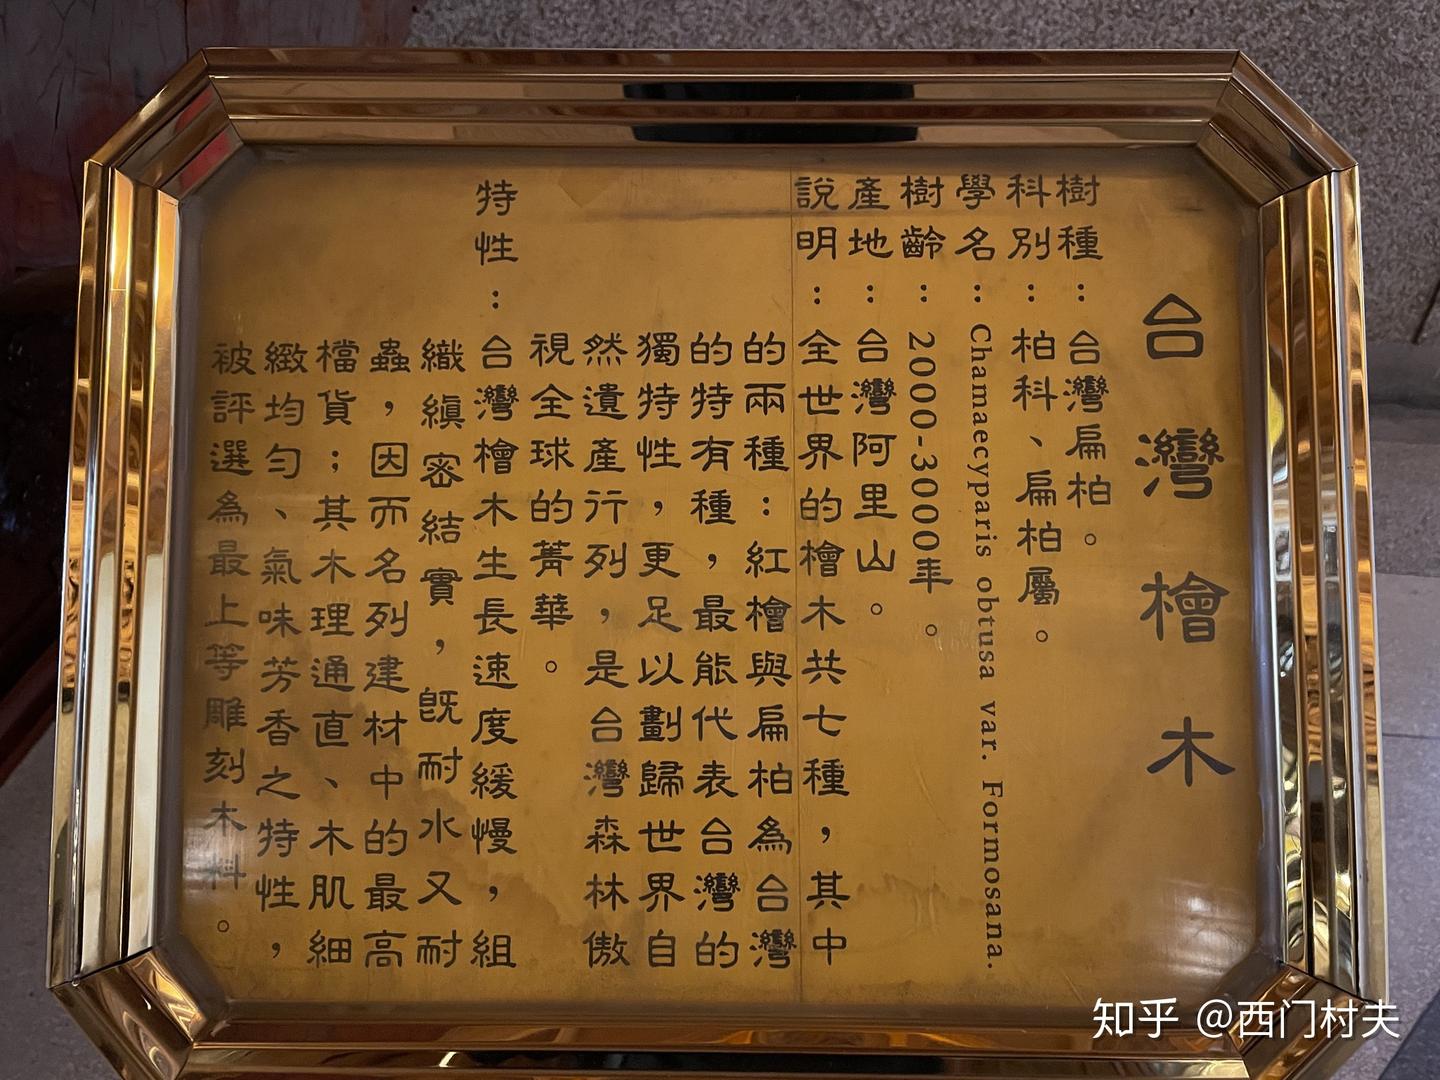 台灣檜木
樹種：台灣扁柏。
科別：柏科、扁柏屬。
學名：Chamaecyparis obtusa var. Formosana.
樹齡：2000-3000年。
產地：台灣阿里山。
說明：全世界的檜木共七種，其中
的兩種：紅檜與扁柏為台灣
的特有種，最能代表台灣的
獨特性，更足以劃歸世界自
然遺產行列，是台灣森林傲
視全球的菁華。
特性：台灣檜木生長速度緩慢，組
織縝密結實，既耐水又耐
蟲，因而名列建材中的最高
檔貨；其木理通直、木肌細
緻均勻、氣味芳香之特性，
被評選為最上等雕刻木料。
知乎 @西门村夫